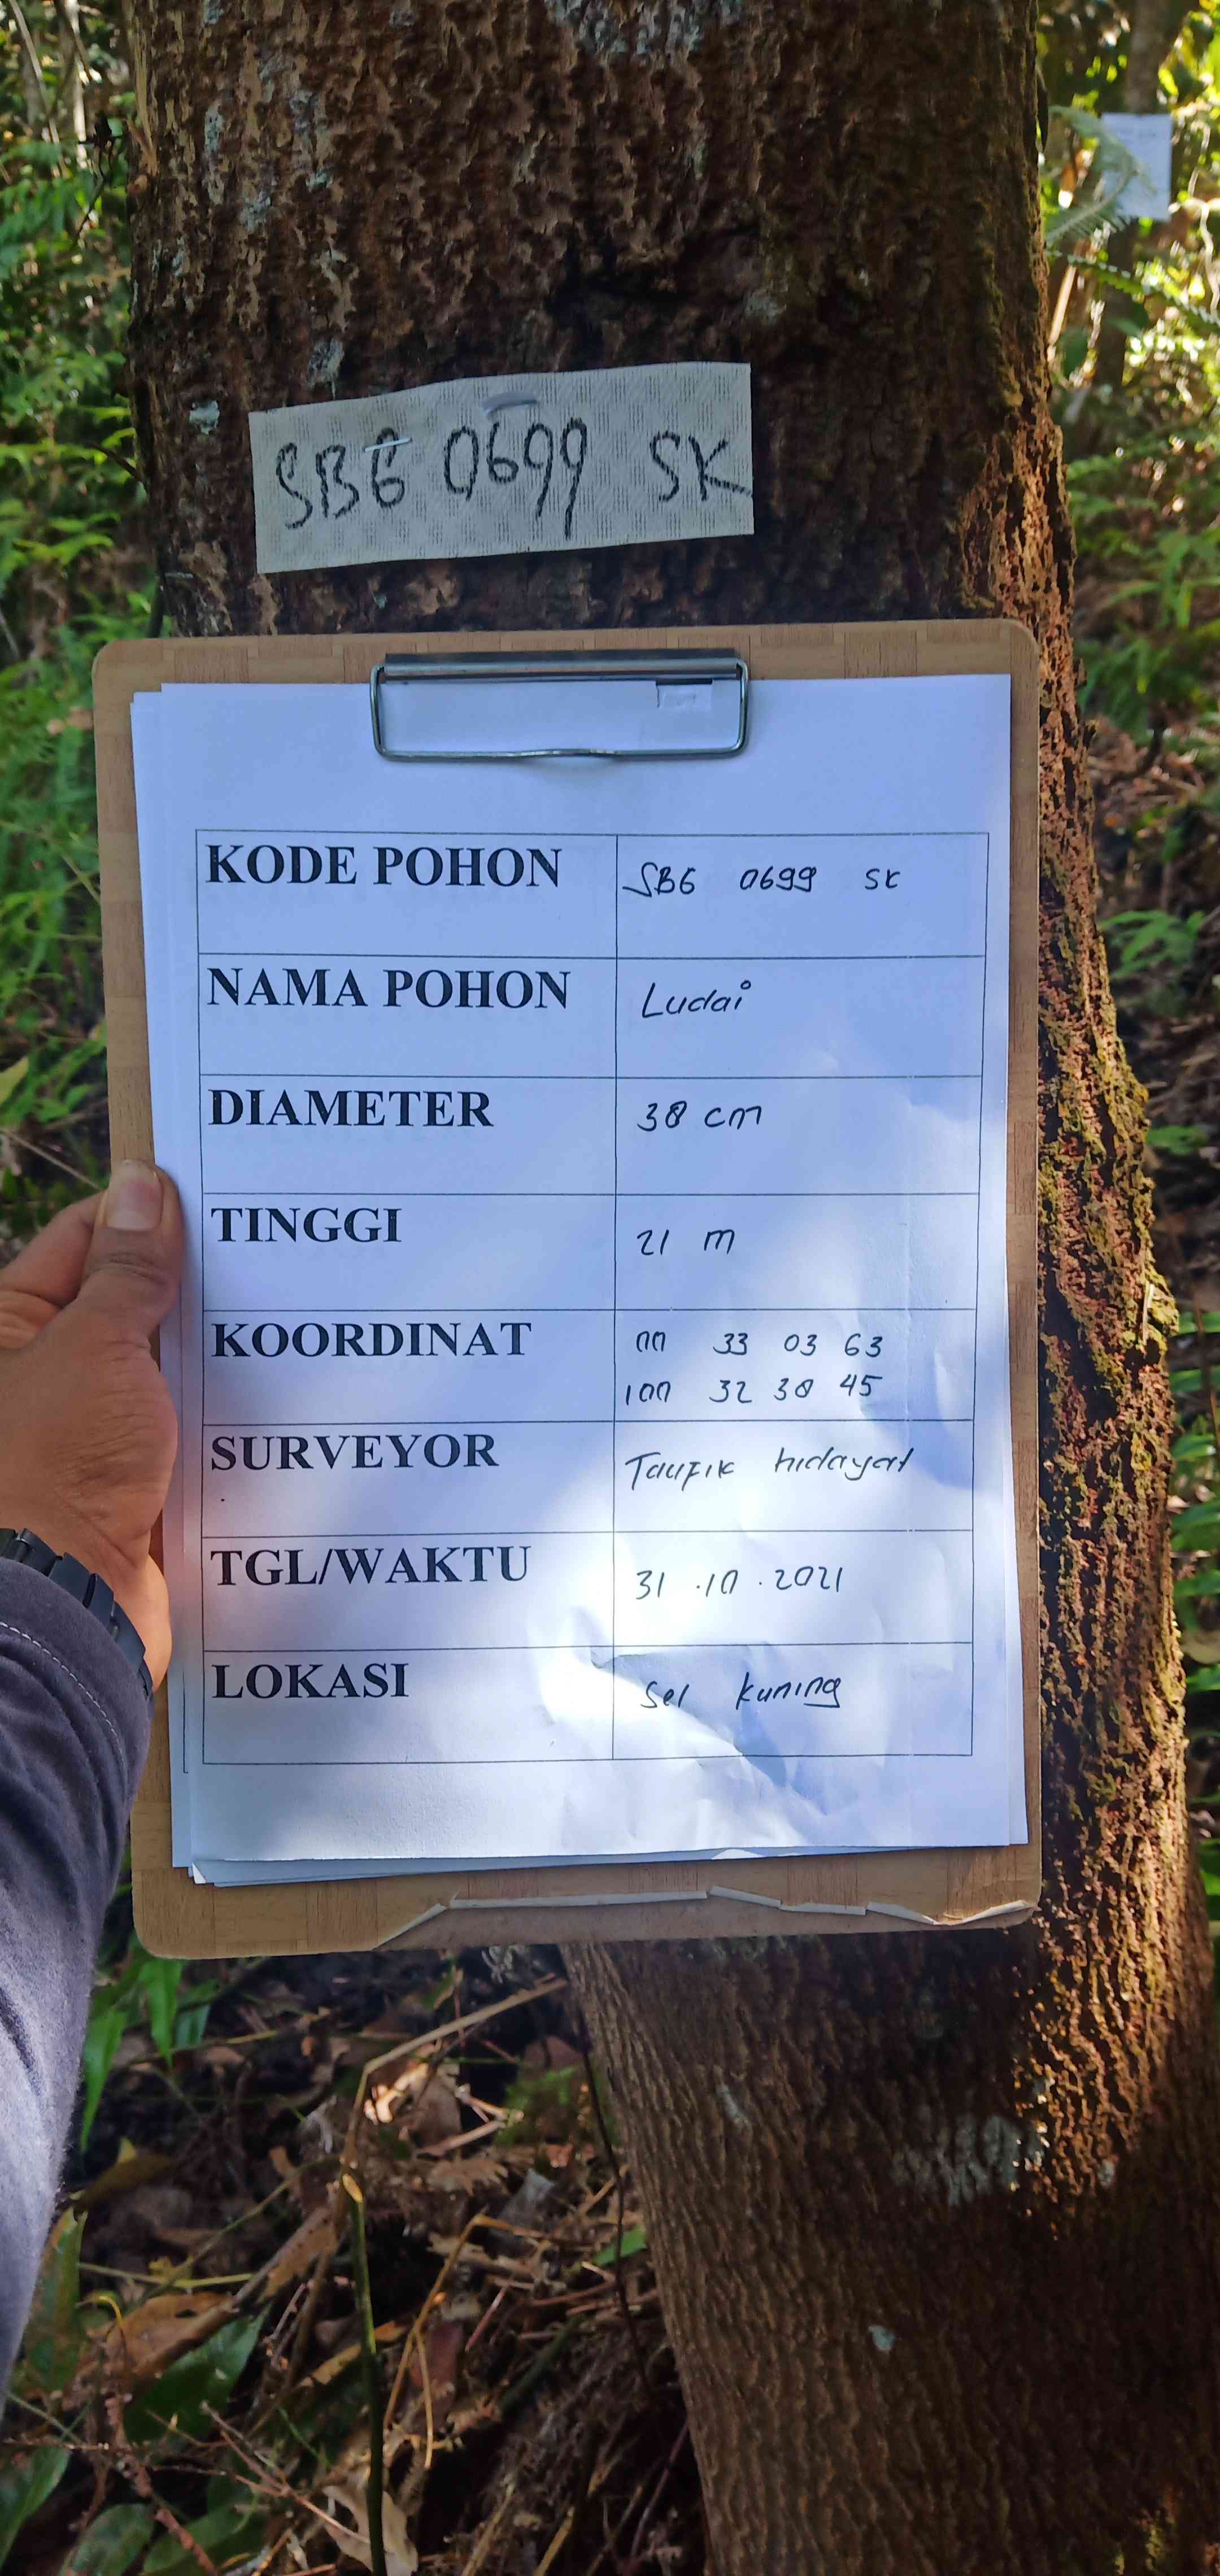 SB6 0699 SK
KODE POHON SB6 0699 SK
NAMA POHON Ludai
DIAMETER 38 cm
TINGGI 21 m
KOORDINAT 00 33 03 63
100 32 38 45
SURVEYOR Taufik hidayat
TGL/WAKTU 31.10.2021
LOKASI Sei kuning